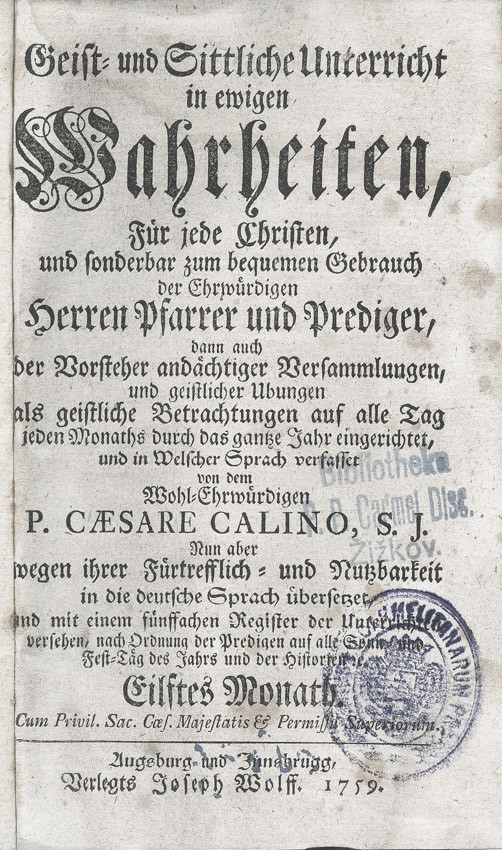 Geist- und Sittliche Unterricht
in ewigen
Wahrheiten,
Für jede Christen,
und sonderbar zum bequemen Gebrauch
der Ehrwürdigen
Herren Pfarrer und Prediger,
dann auch
der Vorsteher andächtiger Versammluugen,
und geistlicher Ubungen
als geistliche Betrachtungen auf alle Tag
jeden Monaths durch das gantze Jahr eingerichtet,
und in Welscher Sprach verfasset
von dem
Wohl-Ehrwürdigen
P. CÆSARE CALINO, S. J.
Nun aber
wegen ihrer Fürtrefflich- und Nutzbarkeit
in die deutsche Sprach übersetzet,
und mit einem fünffachen Register der Unterrichten
versehen, nach Ordnung der Predigen auf alle Sonn- und
Fest-Täg des Jahrs und der Historien ꝛc.
Eilftes Monath.
Cum Privil. Sac. Cæs. Majestatis & Permissu Superiorum.
Augsburg und Innsbrugg,
Verlegts Joseph Wolff. 1759.
Bibliotheka
P. P. Carmel Disc.
Žižkov.